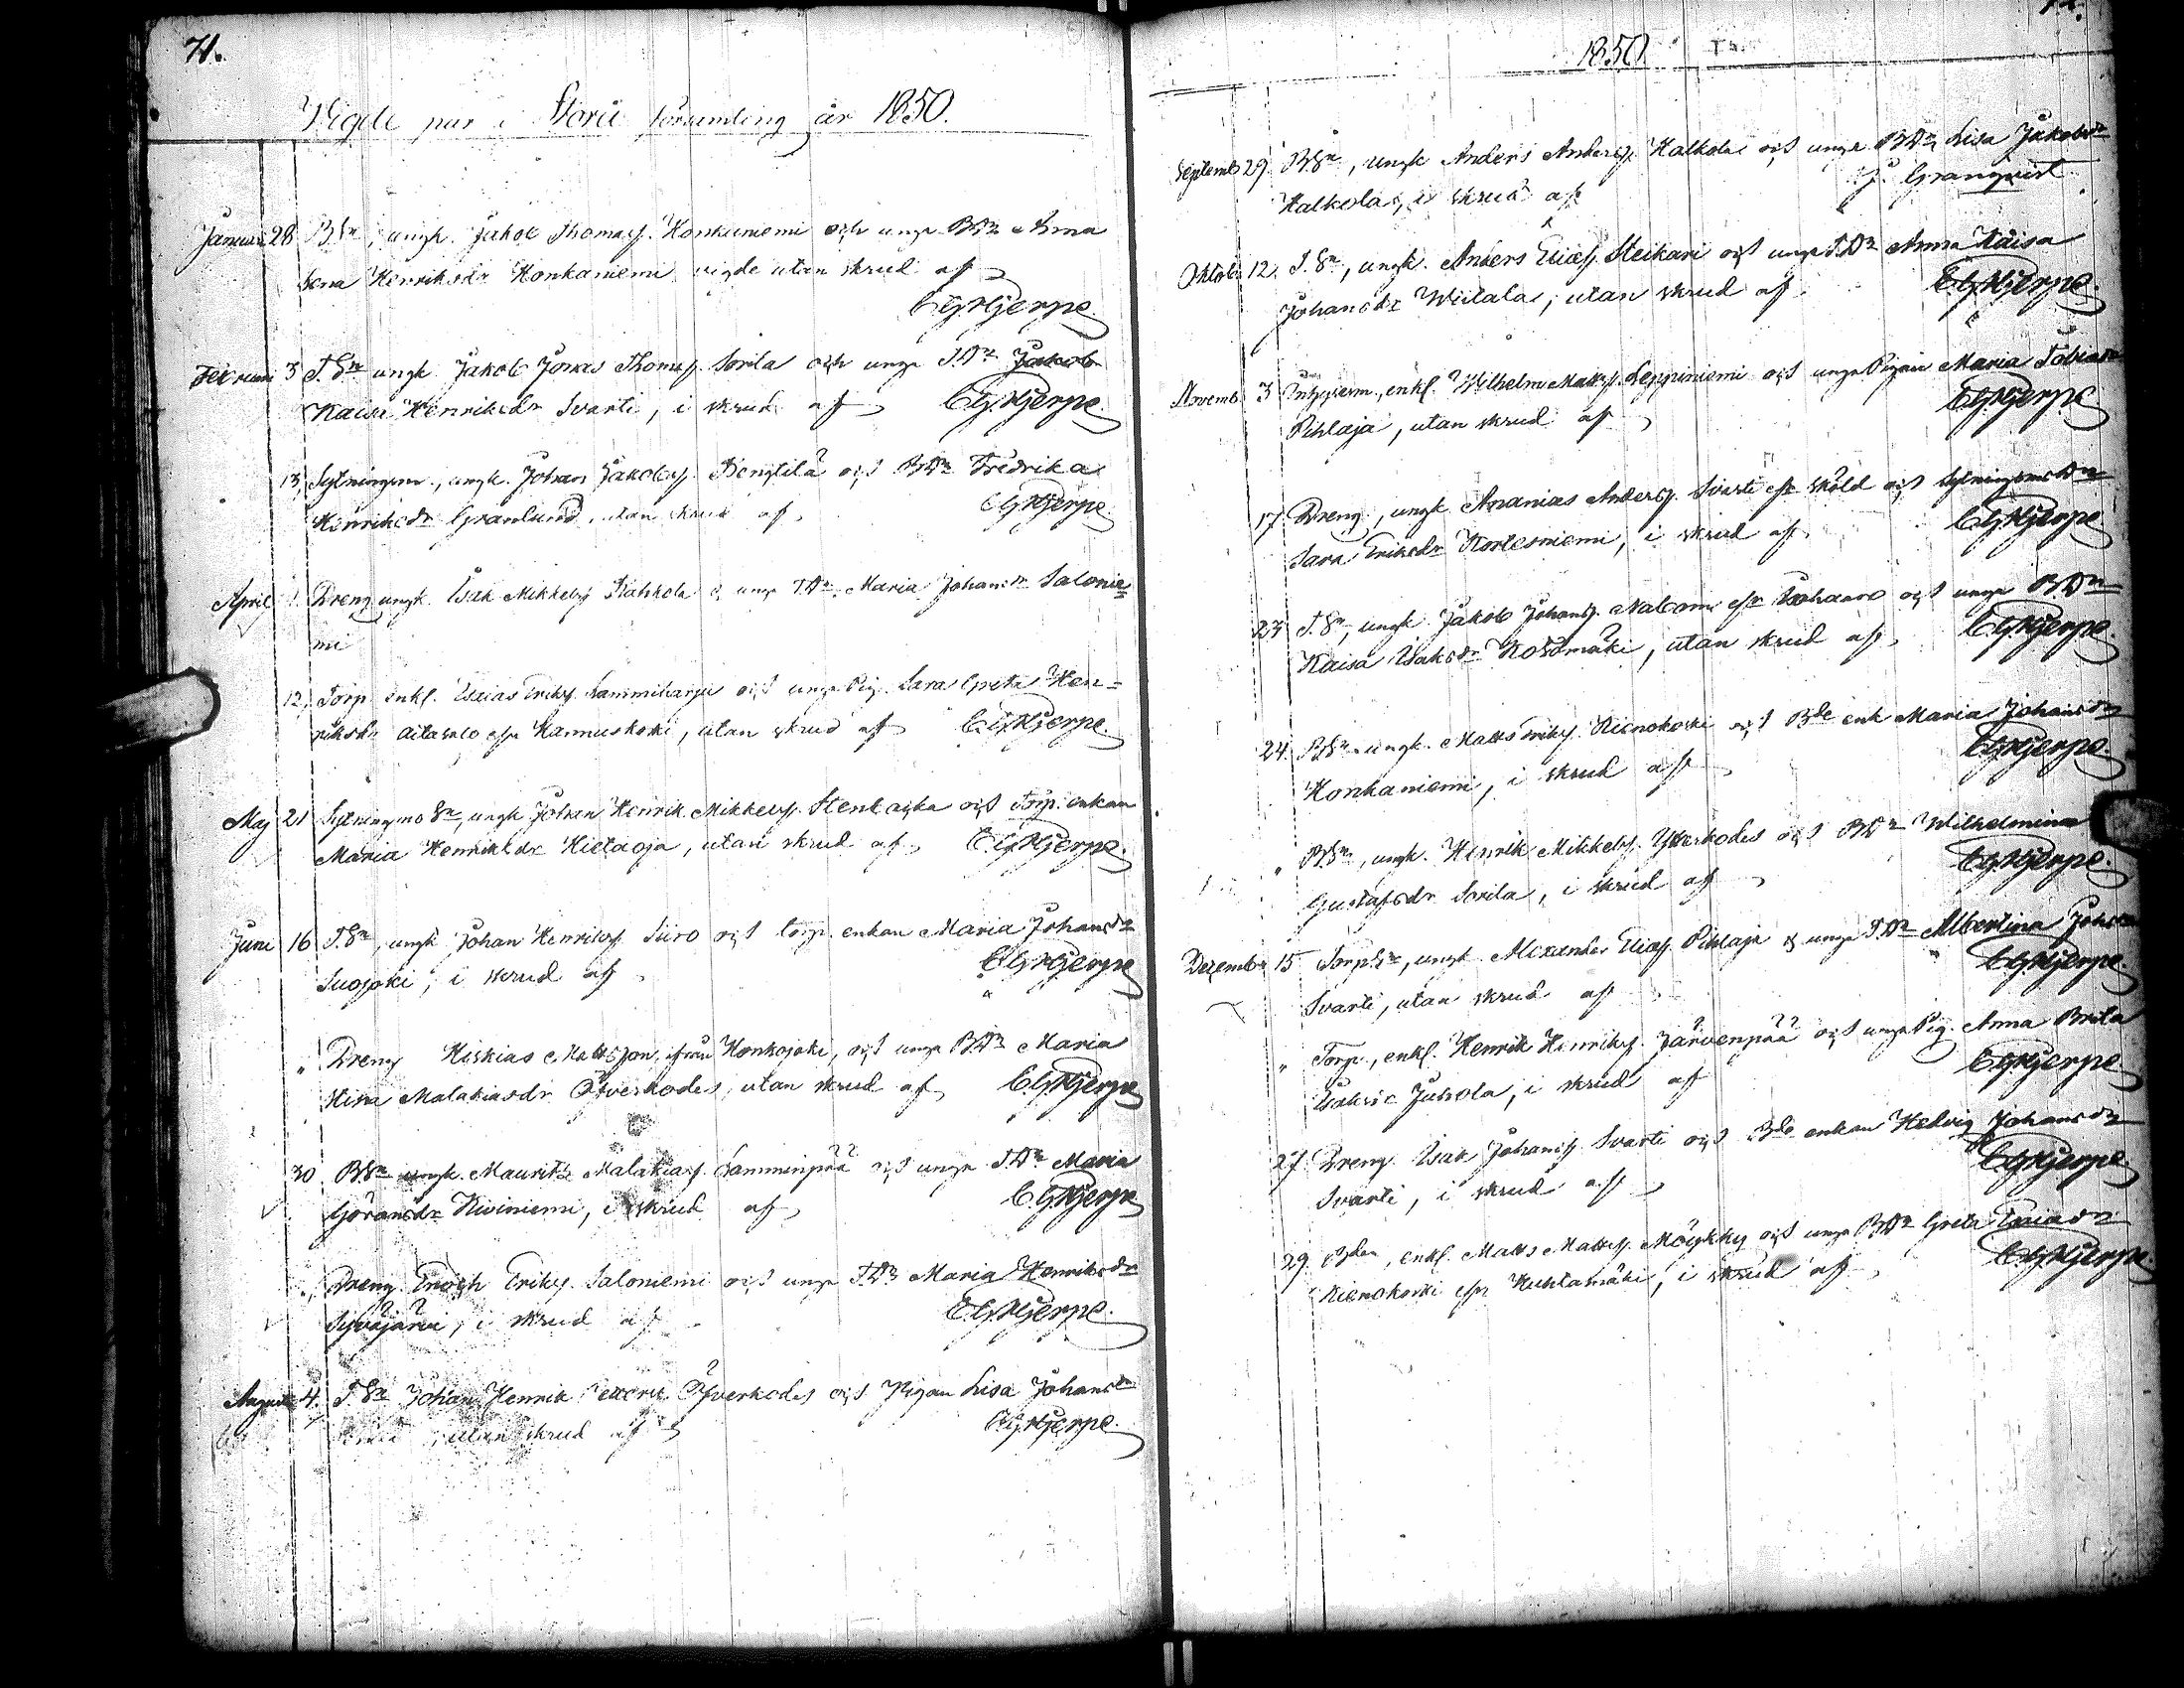 71.
Vigde par i Storå församling år 1850.
Januari 28 BSn, ungk. Jakob Thomass. Honkaniemi och unga BDn Anna
Lena Henriksdr Honkaniemi vigde utan skrud af
CGHjerpe.
Februari 3 T.Sn ungk. Jakob Jonas Thomass. Sorila och unga T.Dn
Kaisa Henriksdr Svarti, i skrud af CGHjerpe.
13, Sytningsm., ungk. Johan Jakobss. Bengtilä och BDn Fredrika
Henriksdr Granlund, utan skrud af, CGHjerpe.
April 1. Dreng ungk. Isak Mikkelss. Kahkola & unga T.Dn. Maria Johansdr Salonie=
mi
12, Torp. enkl. Esaias Erikss. Lammiharju och unga Pig. Sara Greta Hen=
riksdr Aitasalo Kannuskoski, utan skrud af CGHjerpe.
Maj 21 Sytningms Sn, ungk Johan Henrik Mikkelss. Stenbacka och Torp. enkan
Maria Henriksdr Hietaoja, utan skrud af, CGHjerpe.
Juni 16 T.Sn, ungk Johan Henrikss. Siiro och torp. enkan Maria Johansdr
Suojoki, i skrud af CGHjerpe
" Dreng Hiskias Mattsson, ifrån Honkajoki, och unga BDn Maria
Stina Malakiasdr Öfverkodes, utan skrud af, C.GHjerpe
30 BSn ungk. Maurits Malakiass. Lamminpää och unga T.Dn Maria
Göransdr Kiviniemi, i skrud af, C.GHjerpe
" Dreng Enoch Erikss. Saloniemi och unga T.Dn Maria Henriksdr
Syväjärvi, i skrud af CGHjerpe.
Augusti 4. T.Sn Johan Henrik Öfverkodes och Pigan Lisa Johansdr
, utan skrud af CGHjerpe.
1850
Septemb 29. BSn, ungk Anders Anderss. Halkola och unga BDn Lisa Jakobsdr
Halkola, i skrud af J. Granqvist.
Oktob. 12. T.Sn, ungk. Anders Eliass. Steikari och unga T.Dn Anna Kaisa
Johansdr Wiitala, utan skrud af CGHjerpe.
Novemb. 3 Inhysesm., enkl. Wilhelm Mattss. Leppiniemi och unga Pigan Maria Tobiasdr
Pihlaja, utan skrud af CGHjerpe
17. Dreng, ungk Ananias Anderss. Svarti Sköld och Sytningsms Dn
Sara Eriksdr Kortesniemi, i skrud af, CGHjerpe
23 T.Sn, ungk. Jakob Johanss. och unga BDn
Kaisa Isaksdr Kosomäki, utan skrud af, CGHjerpe.
24. BSn ungk. Matts Erikss. Rienokoski och Bde enk Maria Johansdr
Honkaniemi, i skrud af CGHjerpe.
" BSn, ungk. Henrik Mikkelss. Ytterkodes och BDn Wilhelmina
Gustafsdr Sorila, i skrud af CGHjerpe.
Dezember 15. Torp.Sn, ungk. Alexander Eliass. Pihlaja & unga T.Dn Albertina Johansdr
Svarti, utan skrud af CGHjerpe
" Torp., enkl. Henrik Henrikss. Järvenpää och unga Pig. Anna Brita
Isaksdr Juhola, i skrud af CGHjerpe
27. Dreng Isak Johanss. Svarti och Bde enkan Hedvig Johansdr
Svarti, i skrud af CGHjerpe
29. Bden, enkl. Matts Mattss. Möykky och unga BDn Greta Esaiasdr
Rienokoski Huhtamäki, i skrud af, CGHjerpe.